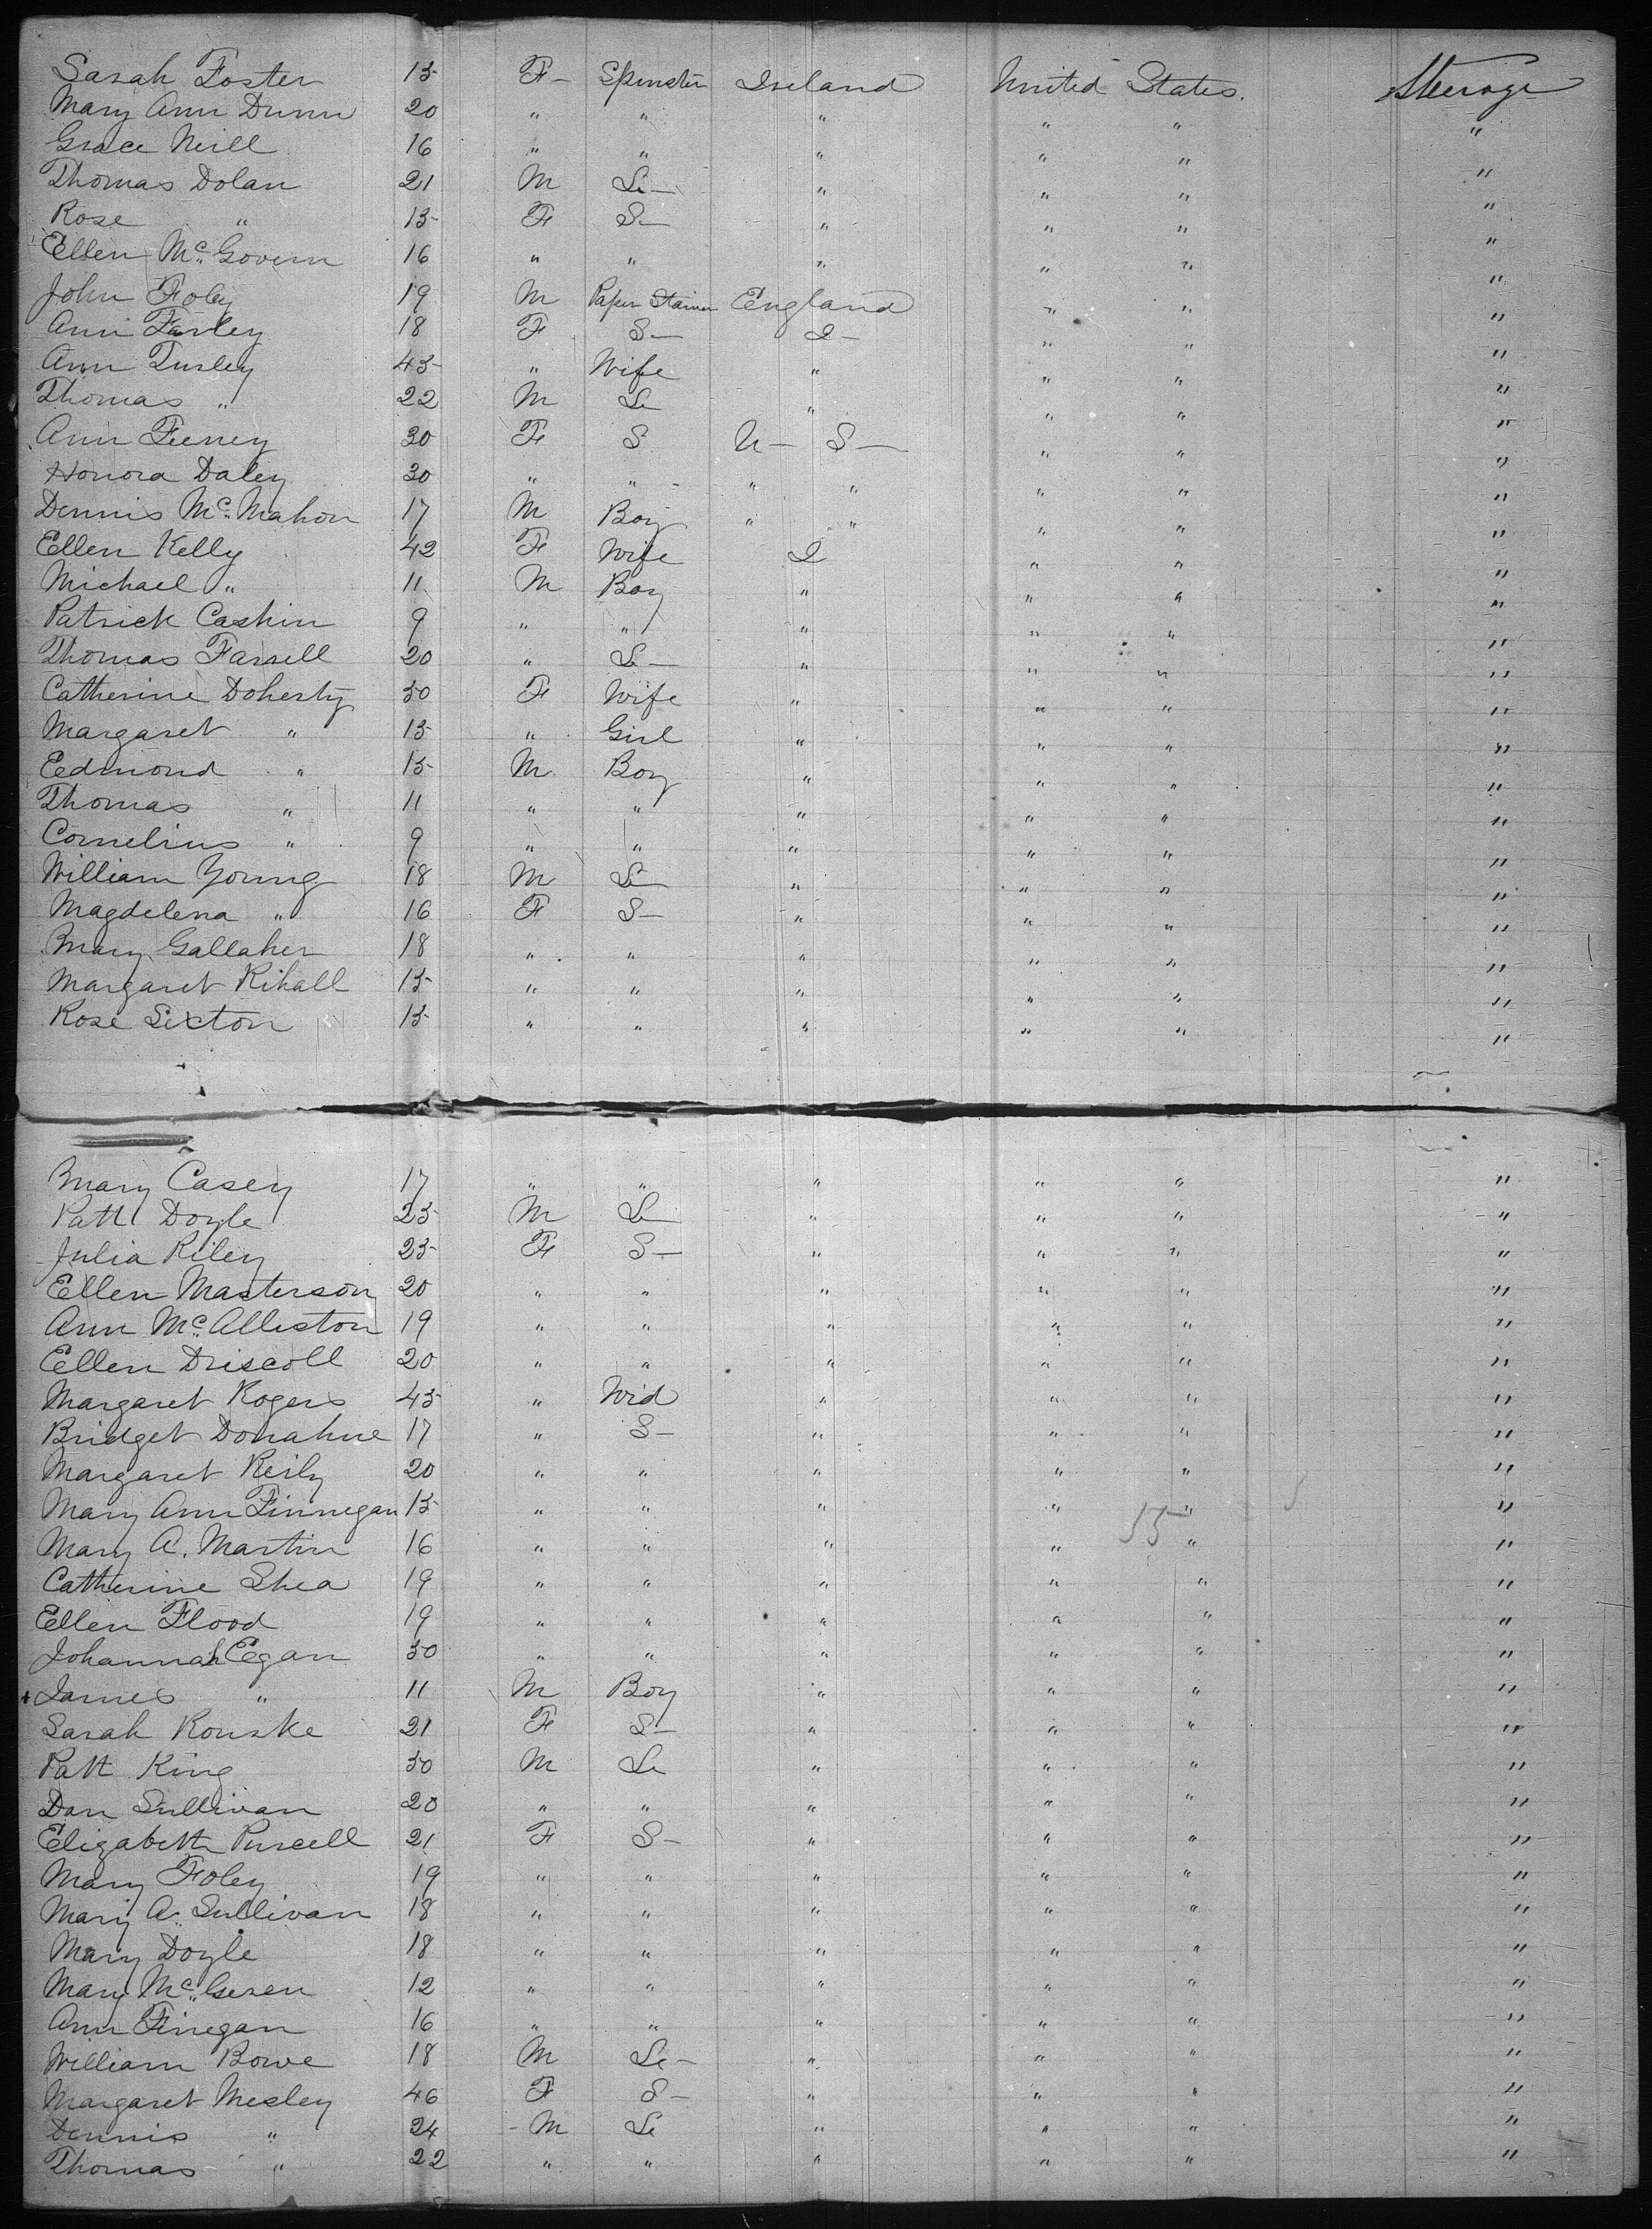 Sarah Foster 15 F - Spinster Ireland United States. Steerage
Mary Ann Dunn 20 " " " " " "
Grace Neill 16 " " " " " "
Thomas Dolan 21 M La— " " " "
Rose " 15 F S— " " " "
Ellen Mc. Govern 16 " " " " " "
John Foley 19 M Paper Stainer England " " "
Ann Farley 18 F S— I— " " "
Ann Turley 45 " Wife " " " "
Thomas " 22 M La " " " "
Ann Feeney 30 F S U— S— " " "
Honora Daley 30 " " " " " " "
Dennis Mc. Mahon 17 M Boy " " " " "
Ellen Kelly 42 F Wife I " " "
Michael " 11 M Boy " " " "
Patrick Cashin 9 " " " " " "
Thomas Farrell 20 " La— " " " "
Catherine Doherty 50 F Wife " " " "
Margaret " 15 " Girl " " " "
Edmond " 15 M Boy " " " "
Thomas " 11 " " " " " "
Cornelius " 9 " " " " " "
William Young 18 M La " " " "
Magdelena " 16 F S— " " " "
Mary Gallaher 18 " " " " " "
Margaret Rihall 15 " " " " " "
Rose Sexton 15 " " " " " "
Mary Casey 17 " " " " " "
Patt Doyle 25 M La " " " "
Julia Riley 25 F S— " " " "
Ellen Masterson 20 " " " " " "
Ann Mc. Alleston 19 " " " " " "
Ellen Driscoll 20 " " " " " "
Margaret Rogers 45 " Wid " " " "
Bridget Donahue 17 " S— " " " "
Margaret Reily 20 " " " " " "
Mary Ann Finnegan 15 " " " " " "
Mary A. Martin 16 " " " 55 " " "
Catherine Shea 19 " " " " " "
Ellen Flood 19 " " " " " "
Johannah Egan 50 " " " " " "
James " 11 M Boy " " " "
Sarah Rourke 21 F S— " " " "
Patt King 50 M La " " " "
Dan Sullivan 20 " " " " " "
Elizabeth Purcell 21 F S— " " " "
Mary Foley 19 " " " " " "
Mary A. Sullivan 18 " " " " " "
Mary Doyle 18 " " " " " "
Mary Mc. 12 " " " " " "
Ann Finegan 16 " " " " " "
William Bowe 18 M La— " " " "
Margaret Mesley 46 F S— " " " "
Dennis " 24 M La " " " "
Thomas " 22 " " " " " "